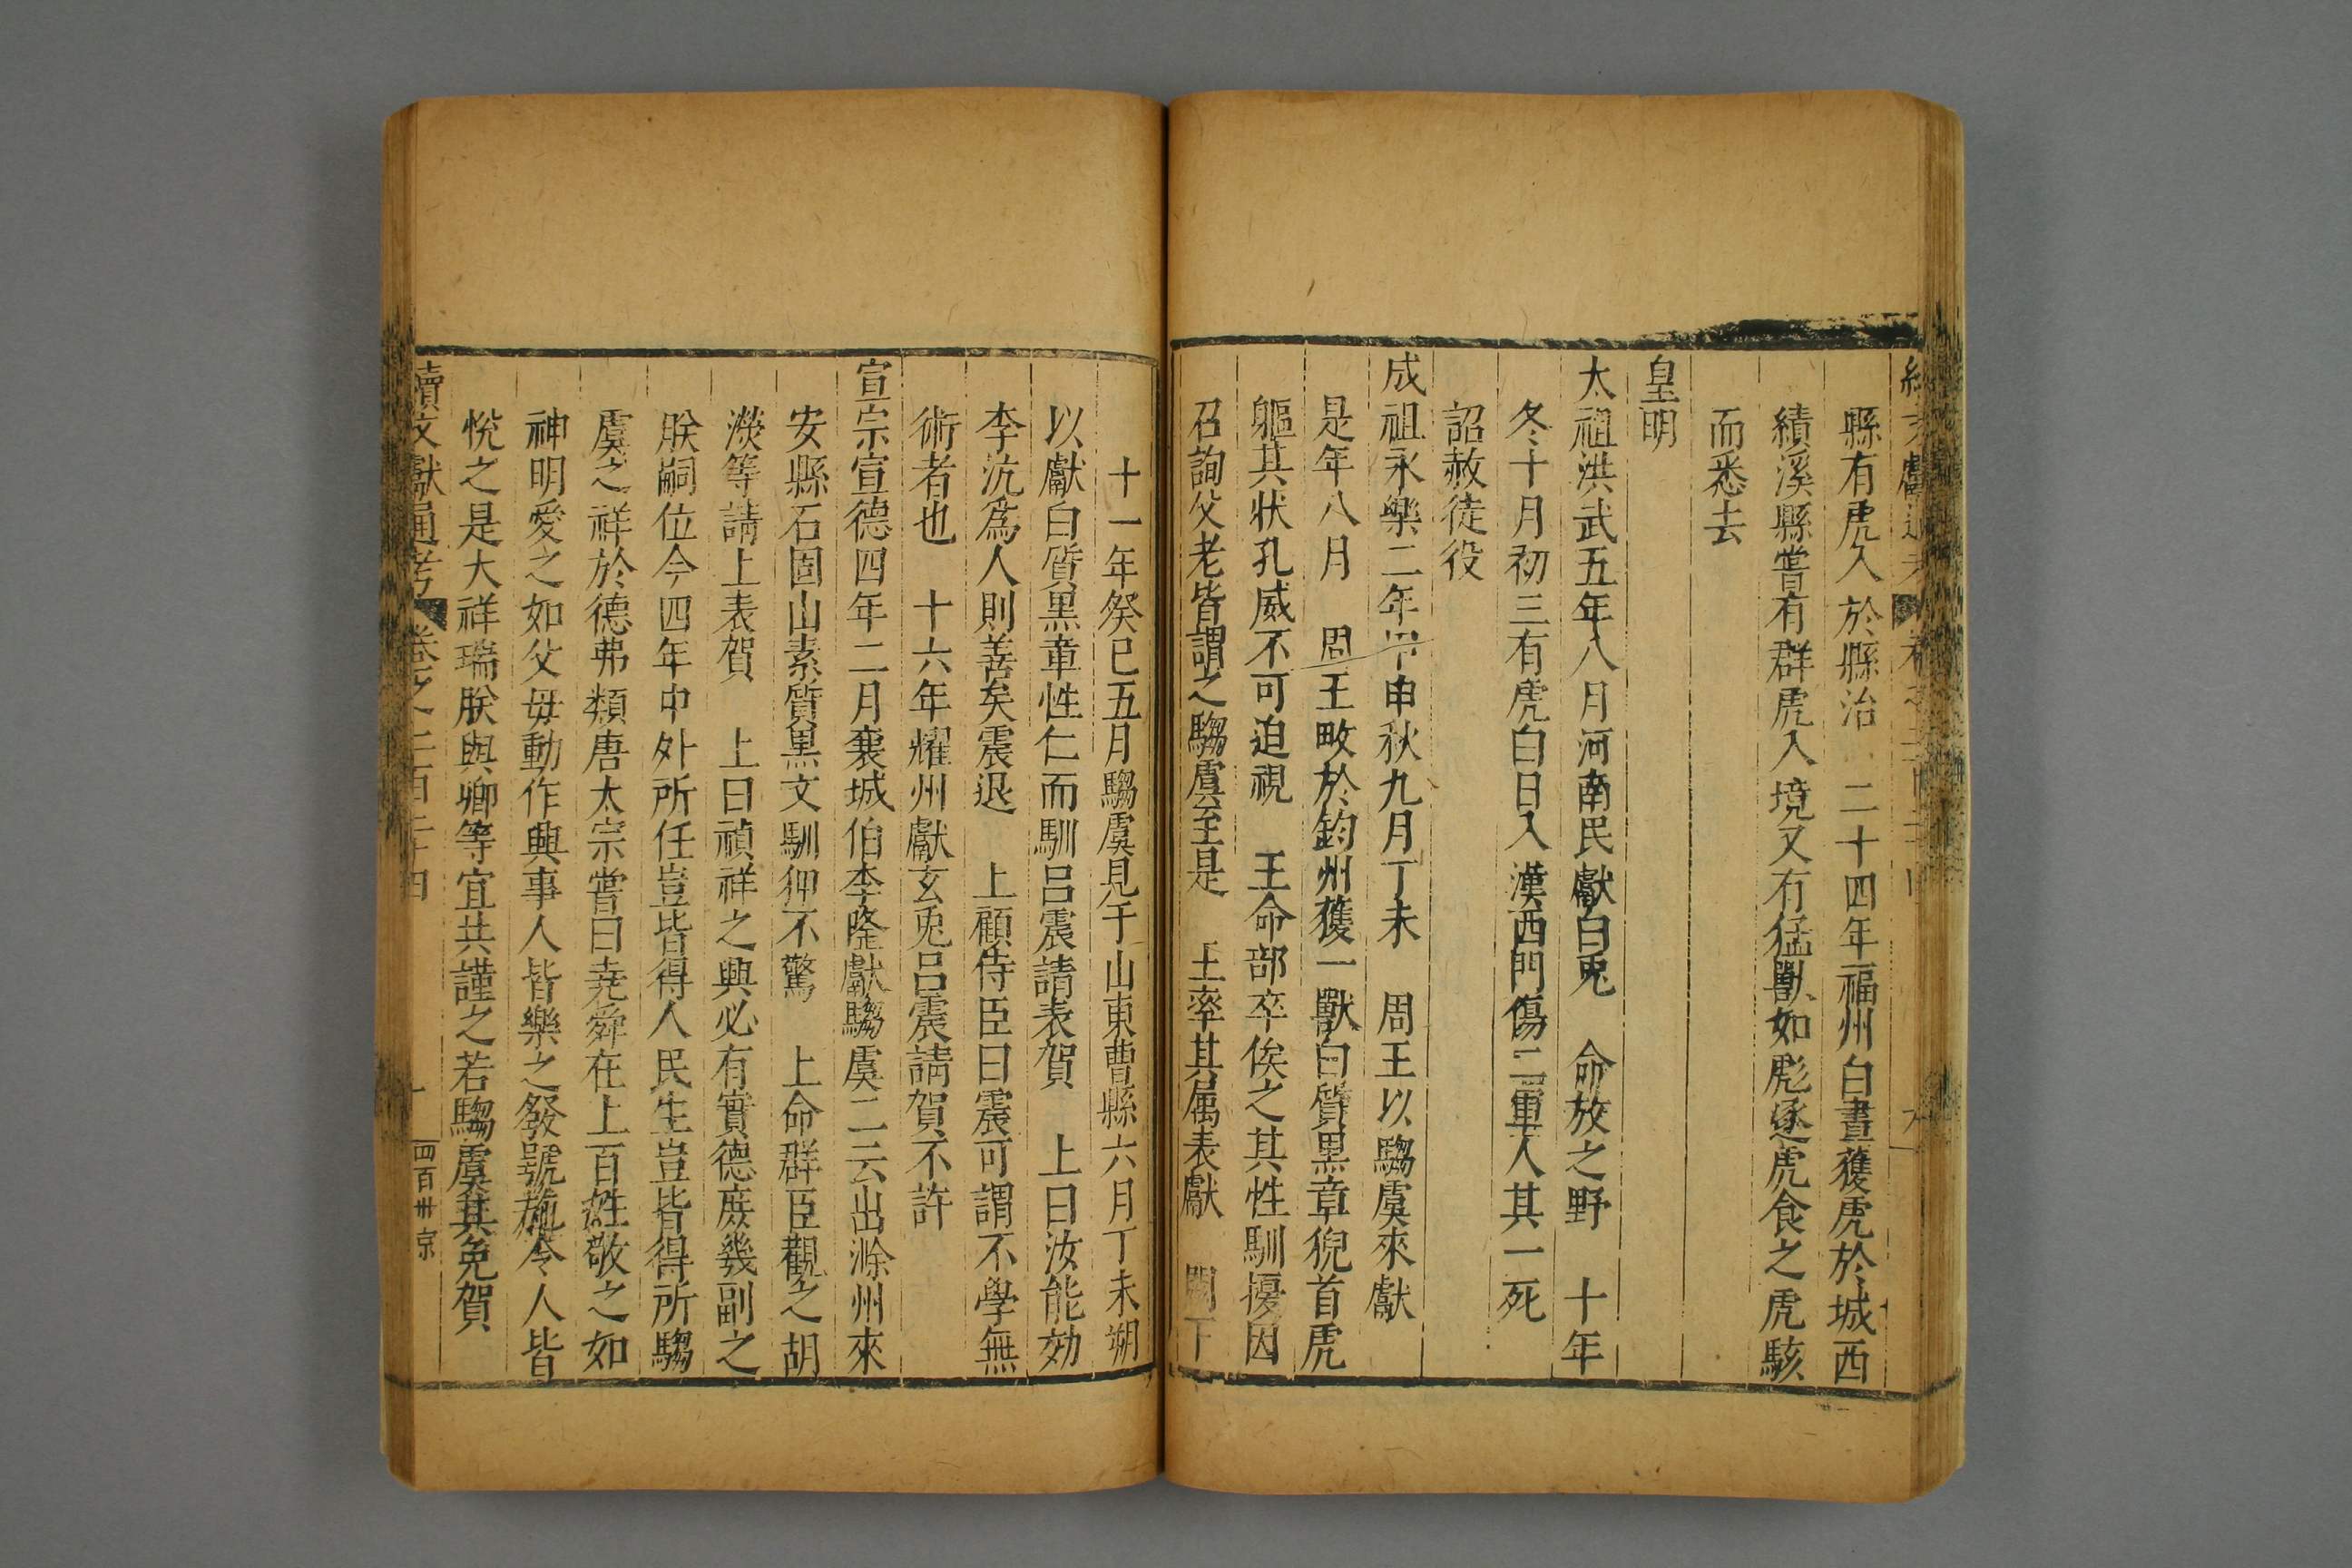 縣有虎入於縣治　二十四年福州白晝獲虎於城西
績溪縣嘗有群虎入境又有猛獸如彪逐虎食之虎駭
而悉去
皇明
太祖洪武五年八月河南民獻白兎　命放之野　十年
冬十月初三有虎白日入漢西門傷二軍人其一死
詔赦徒役
成祖永樂二年甲申秋九月丁未　周王以騶虞來獻
是年八月　周王畋於鈞州獲一獸白質黒章猊首虎
軀其狀孔威不可迫視　王命部卒俟之其性馴擾因
召詢父老皆謂之騶虞至是　王率其属表獻　闕下
十一年癸巳五月騶虞見于山東曹縣六月丁未朔
以獻白質黒章性仁而馴呂震請表賀　上曰汝能効
李沆爲人則善矣震退　上顧侍臣曰震可謂不學無
術者也　十六年耀州獻玄兎呂震請賀不許
宣宗宣德四年二月襄城伯李隆獻騶虞二云出滁州來
安縣石固山素質黒文馴仰不驚　上命群臣觀之胡
濙等請上表賀　上曰禎祥之興必有實德庻幾副之
朕嗣位今四年中外所任豈皆得人民生豈皆得所騶
虞之祥於德弗類唐太宗嘗曰堯舜在上百姓敬之如
神明愛之如父毋動作興事人皆樂之發號施令人皆
悅之是大祥瑞朕與卿等宜共謹之若騶虞其免賀
續文獻通考　卷之二百二十四　四百卅　京